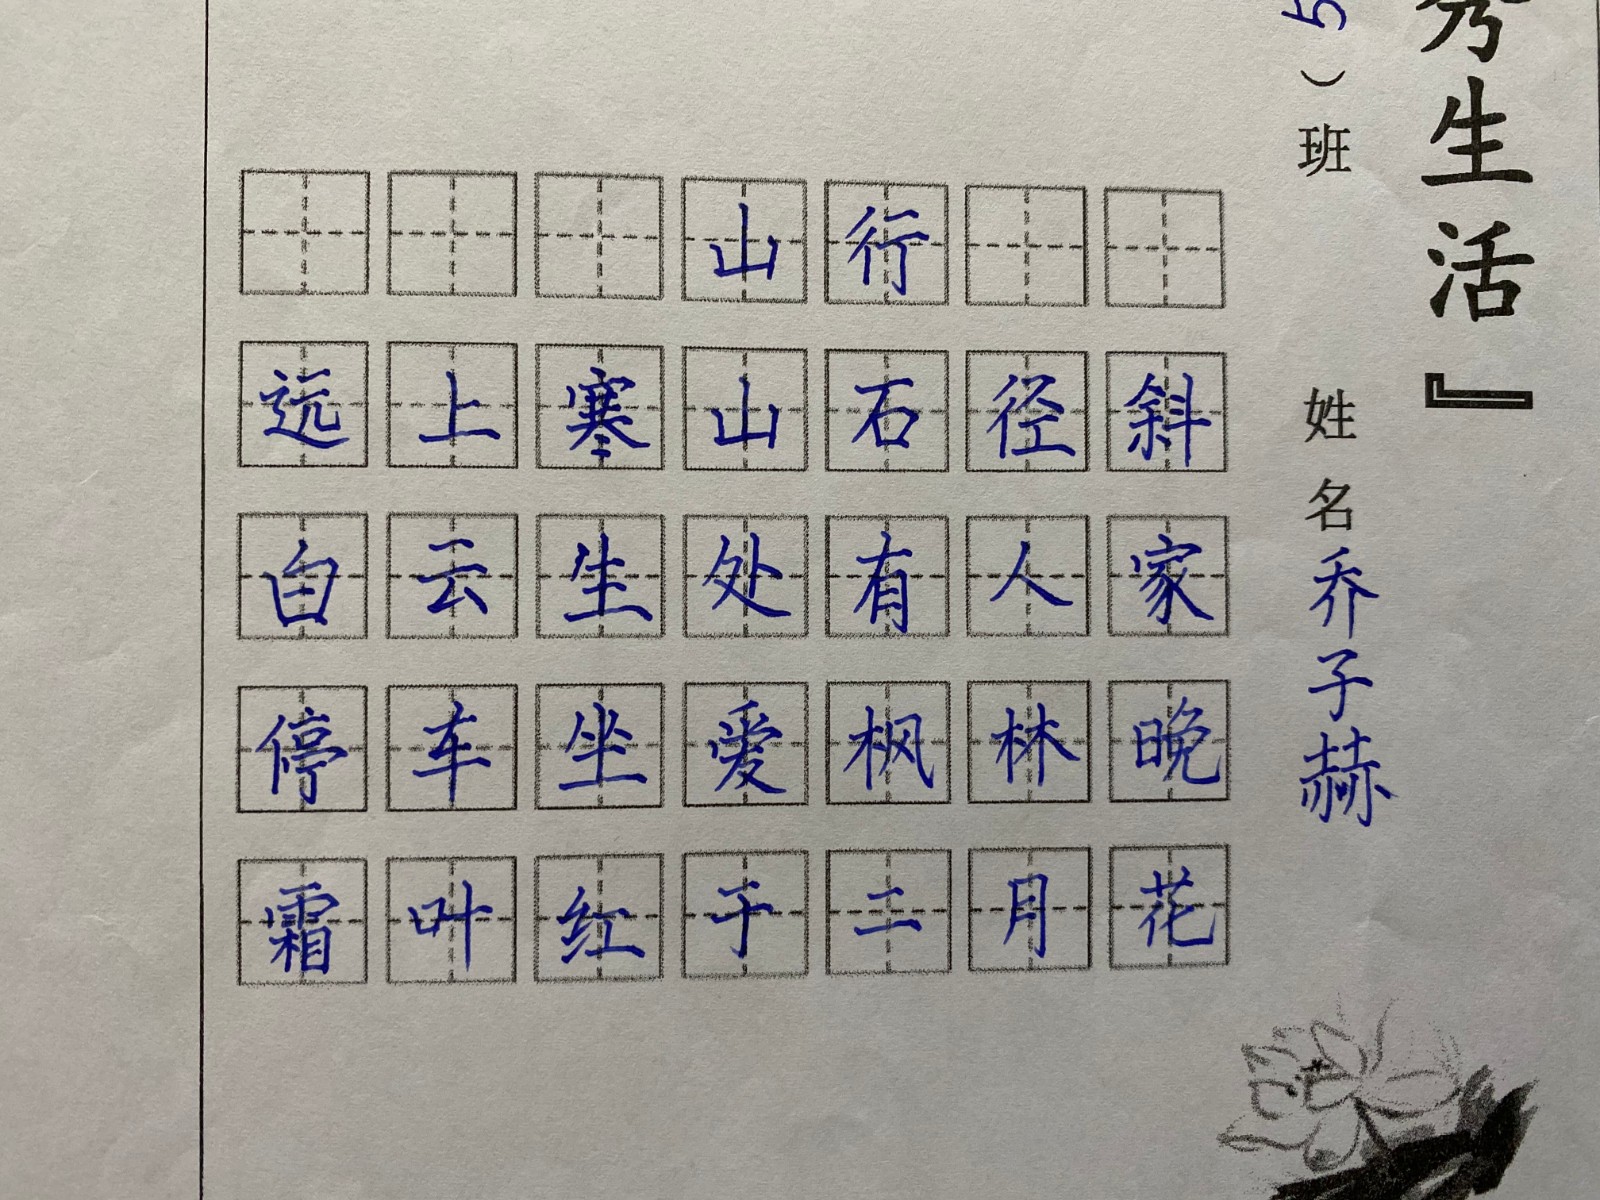 山行
远上寒山石径斜
白云生处有人家
停车坐爱枫林晚
霜叶红于二月花
5）班 姓名乔子赫
秀生活』